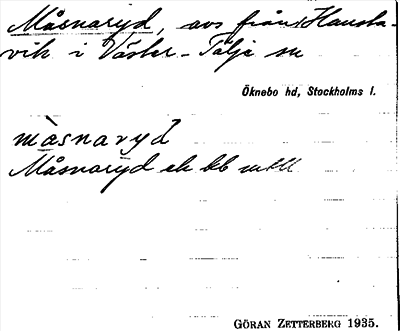 Måsnaryd, avs från Hansta-
vik i Väster-Tälje sn
Öknebo hd, Stockholms l.
màsnaryd
Måsnaryd ek bb
GÖRAN ZETTERBERG 1935.